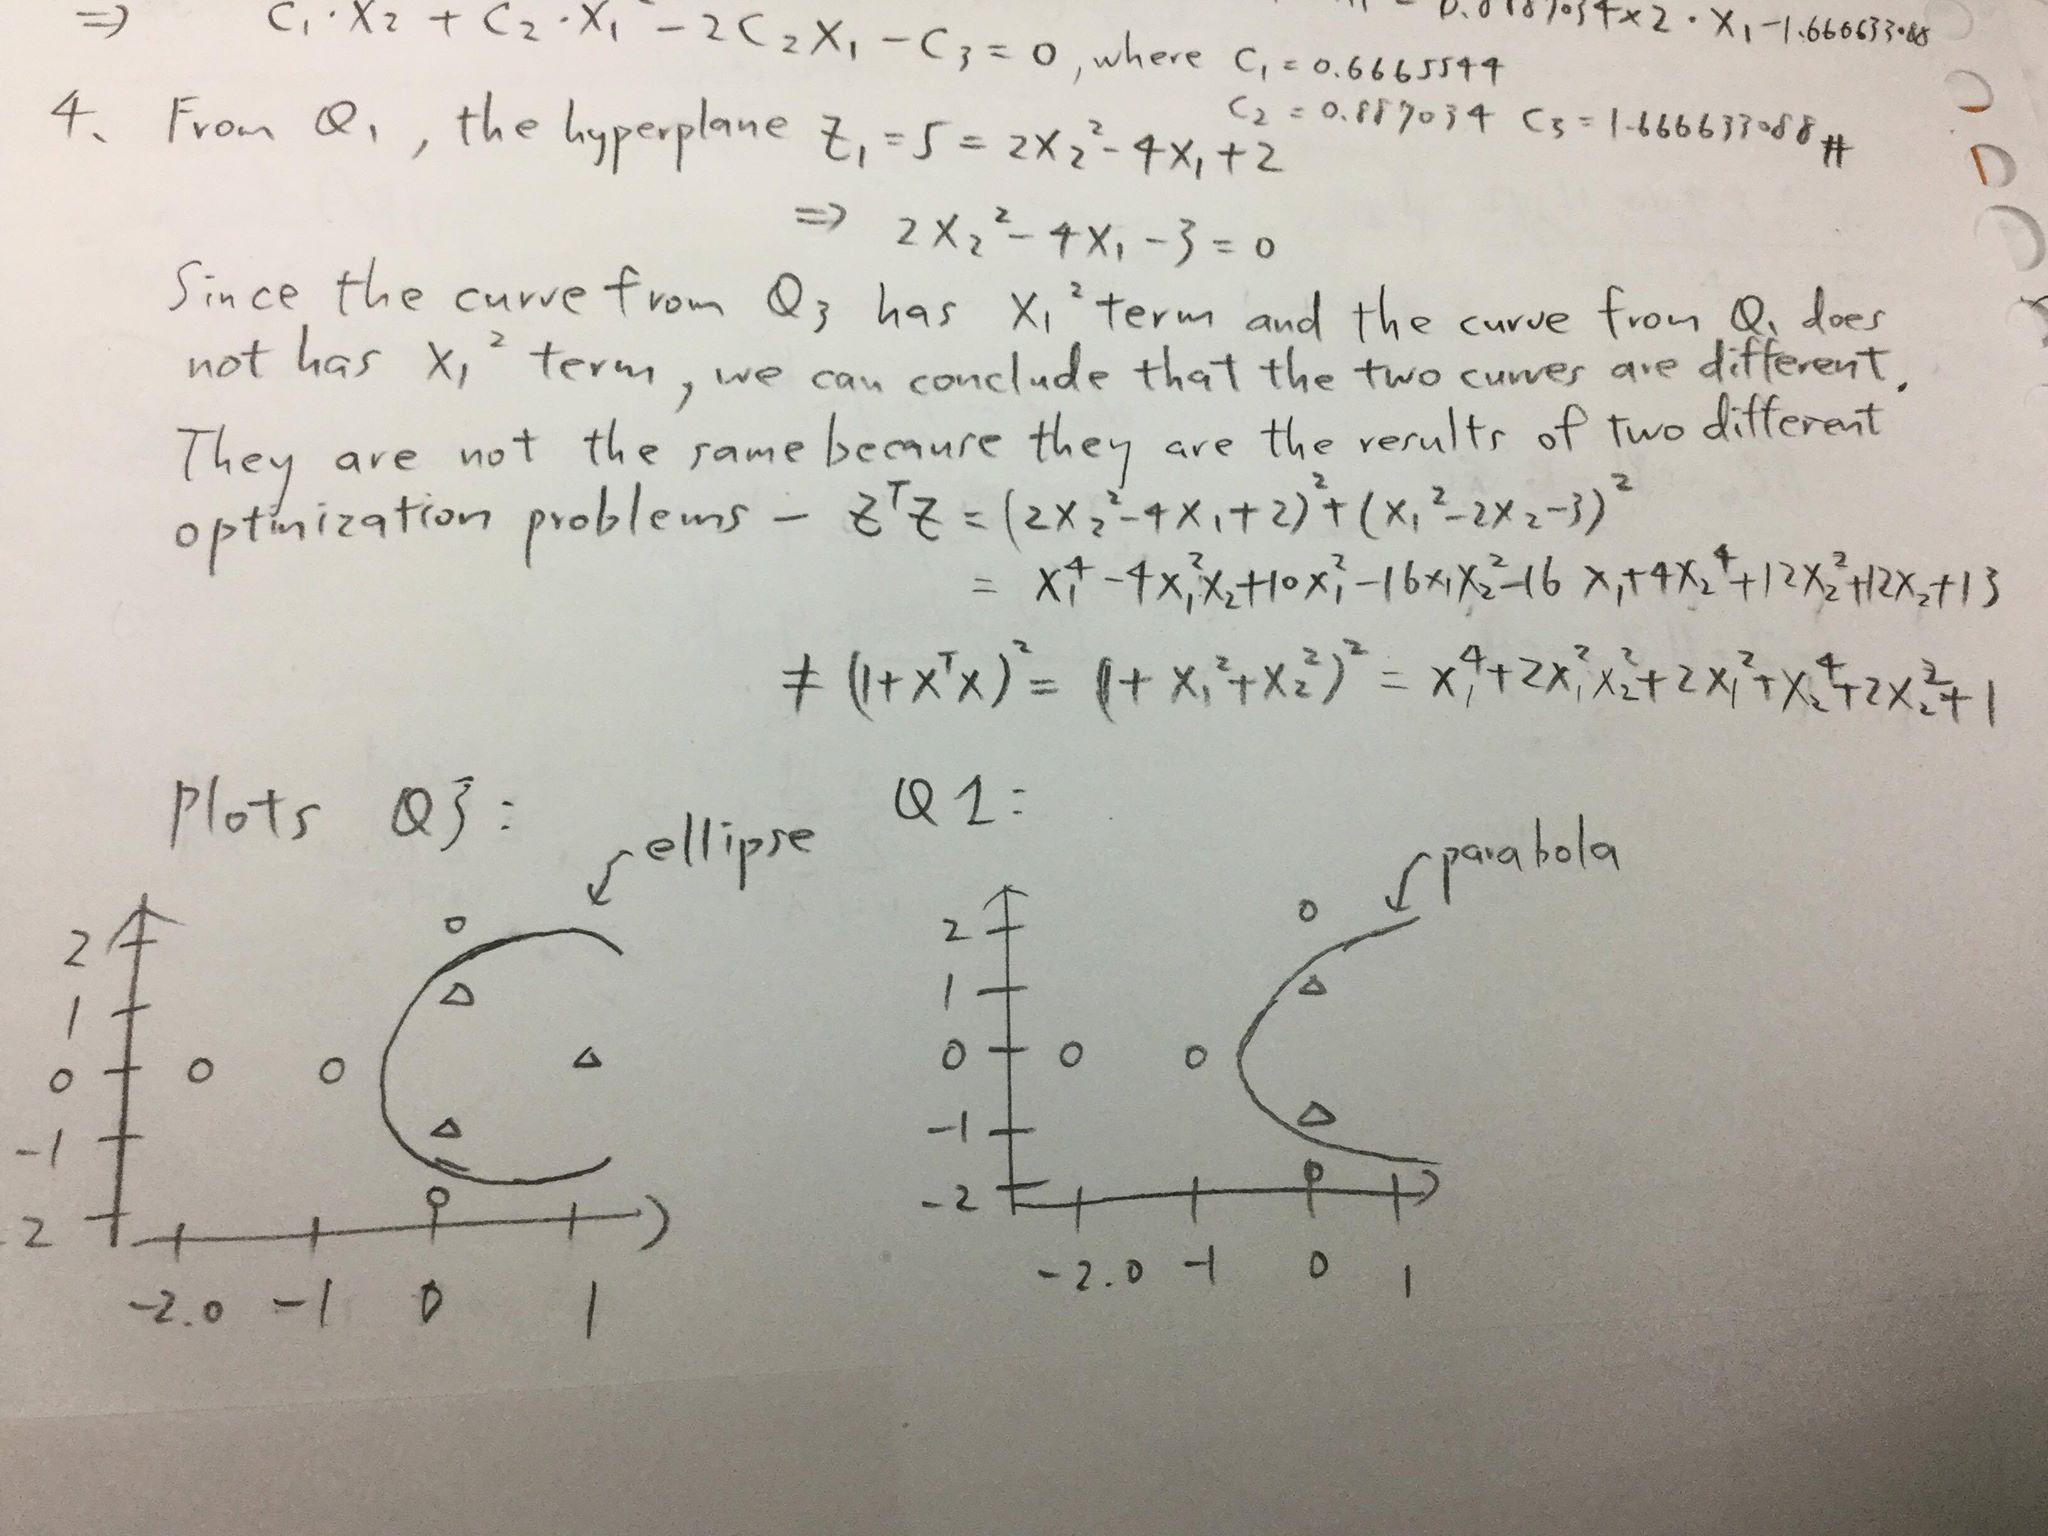 0.887034x2·X₁-1.666633088
⇒ C₁·X₂ + C₂·X₁² - 2C₂X₁ - C₃ = 0, where C₁ = 0.6665544
C₂ = 0.887034 C₃ = 1.666633088 #
4. From Q₁, the hyperplane Z₁ = 5 = 2X₂² - 4X₁ + 2
⇒ 2X₂² - 4X₁ - 3 = 0
Since the curve from Q₃ has X₁² term and the curve from Q₁ does
not has X₁² term, we can conclude that the two curves are different.
They are not the same because they are the results of two different
optimization problems - ZᵀZ = (2X₂²-4X₁+2)² + (X₁²-2X₂-3)²
= X₁⁴-4X₁²X₂+10X₁²-16X₁X₂²-16X₁+4X₂⁴+12X₂²+12X₂+13
≠ (1+XᵀX)² = (1+X₁²+X₂²)² = X₁⁴+2X₁²X₂²+2X₁²+X₂⁴+2X₂²+1
Plots Q3: Q1:
ellipse
parabola
2
1
0
-1
-2
-2.0 -1 0 1
2
1
0
-1
-2
-2.0 -1 0 1